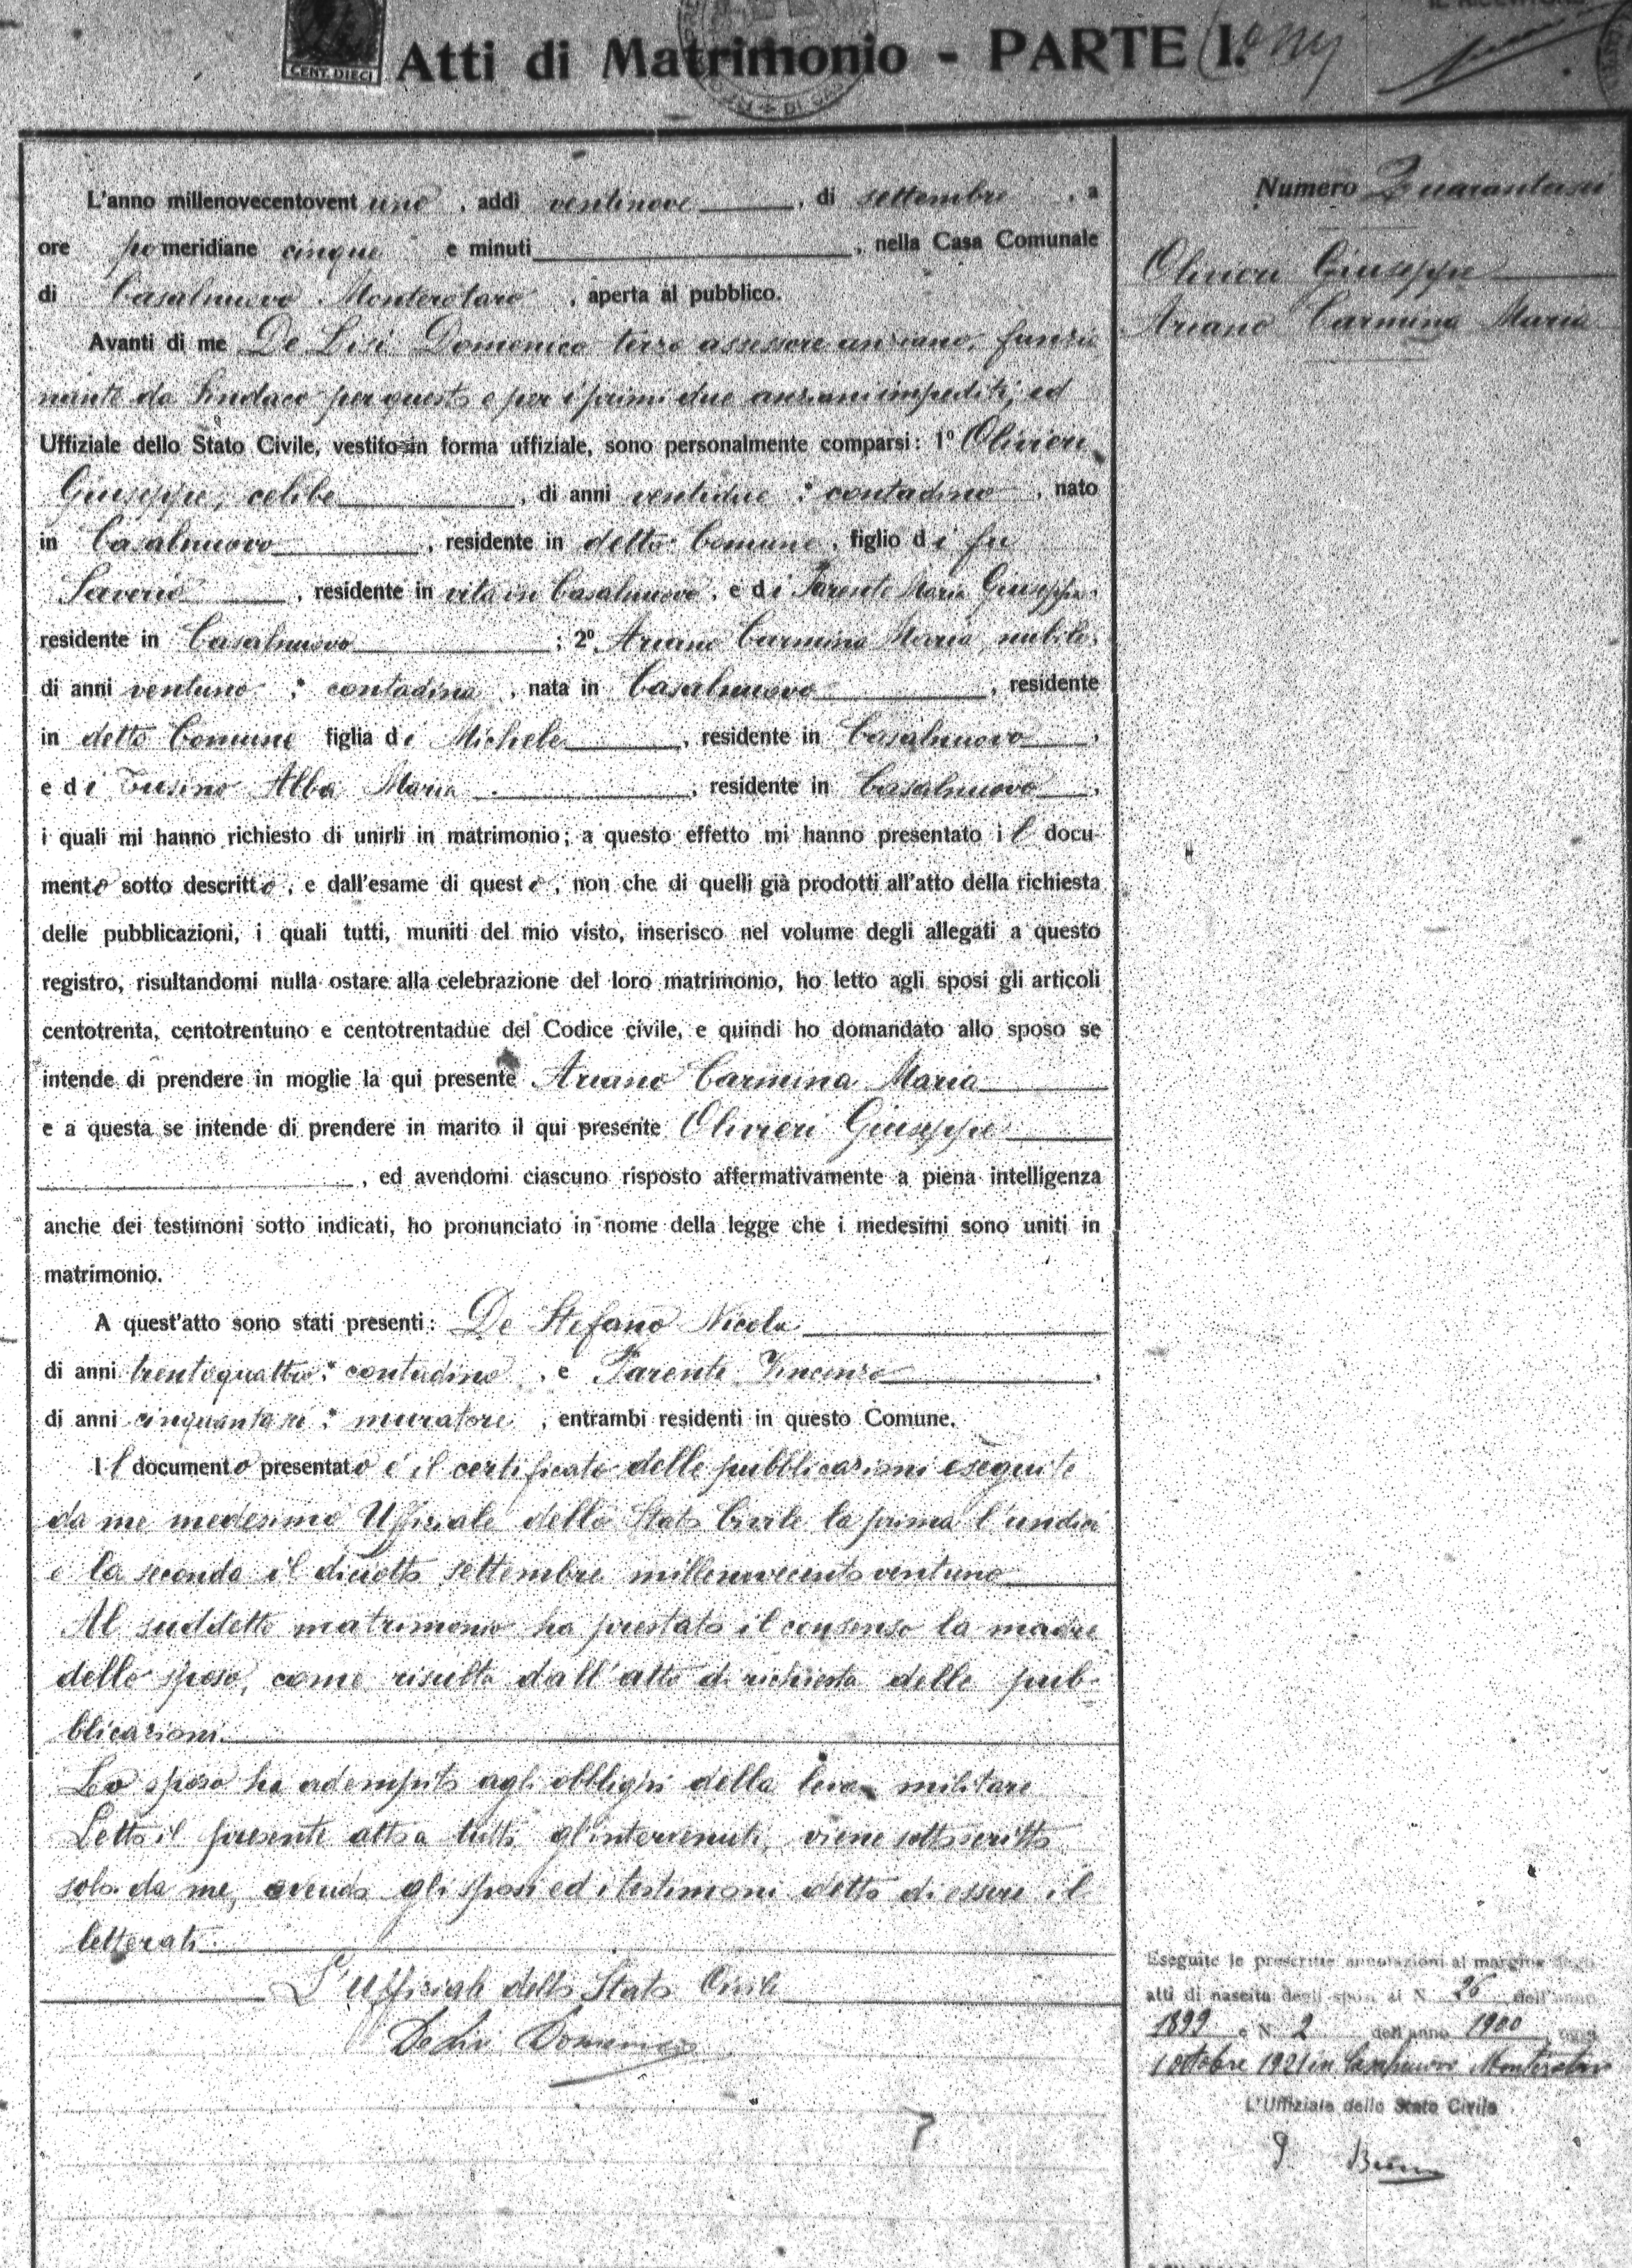 CENT. DIECI
Atti di Matrimonio - PARTE I.
L'anno millenovecentovent uno, addì ventinove, di settembre, a
ore pomeridiane cinque e minuti, nella Casa Comunale
di Casalnuovo Monterotaro, aperta al pubblico.
Avanti di me De Lisi Domenico terzo assessore anziano, funzio
nante da Sindaco per questo e per i primi due anziani impediti, ed
Uffiziale dello Stato Civile, vestito in forma uffiziale, sono personalmente comparsi: 1º Olivieri
Giuseppe, celibe, di anni ventidue; contadino, nato
in Casalnuovo, residente in detto Comune, figlio di fu
Saverio, residente in vita in Casalnuovo, e di Parente Maria Giuseppa,
residente in Casalnuovo; 2º Ariano Carmina Maria, nubile,
di anni ventuno; contadina, nata in Casalnuovo, residente
in detto Comune figlia di Michele, residente in Casalnuovo,
e di Tusino Alba Maria, residente in Casalnuovo,
i quali mi hanno richiesto di unirli in matrimonio; a questo effetto mi hanno presentato il docu-
mento sotto descritto, e dall'esame di questo, non che di quelli già prodotti all'atto della richiesta
delle pubblicazioni, i quali tutti, muniti del mio visto, inserisco nel volume degli allegati a questo
registro, risultandomi nulla ostare alla celebrazione del loro matrimonio, ho letto agli sposi gli articoli
centotrenta, centotrentuno e centotrentadue del Codice civile, e quindi ho domandato allo sposo se
intende di prendere in moglie la qui presente Ariano Carmina Maria
e a questa se intende di prendere in marito il qui presente Olivieri Giuseppe
, ed avendomi ciascuno risposto affermativamente a piena intelligenza
anche dei testimoni sotto indicati, ho pronunciato in nome della legge che i medesimi sono uniti in
matrimonio.
A quest'atto sono stati presenti: De Stefano Nicola
di anni trentaquattro; contadino, e Parente Vincenzo,
di anni cinquantasei; muratore, entrambi residenti in questo Comune.
Il documento presentato è il certificato delle pubblicazioni eseguite
da me medesimo Uffiziale dello Stato Civile la prima l'undici
e la seconda il diciotto settembre millenovecentoventuno
Al suddetto matrimonio ha prestato il consenso la madre
dello sposo, come risulta dall'atto di richiesta delle pub-
blicazioni.
Lo sposo ha adempito agli obblighi della leva militare
Letto il presente atto a tutti gl'intervenuti, viene sottoscritto
solo da me, avendo gli sposi ed i testimoni detto di essere il
letterati.
L'Uffiziale dello Stato Civile
De Lisi Domenico
Numero Quarantasei
Olivieri Giuseppe
Ariano Carmina Maria
Eseguite le prescritte annotazioni al margine degli
atti di nascita degli sposi ai N. 26 dell'anno
1899 e N. 2 dell'anno 1900, oggi
1 ottobre 1921 in Casalnuovo Monterotaro
L'Uffiziale dello Stato Civile